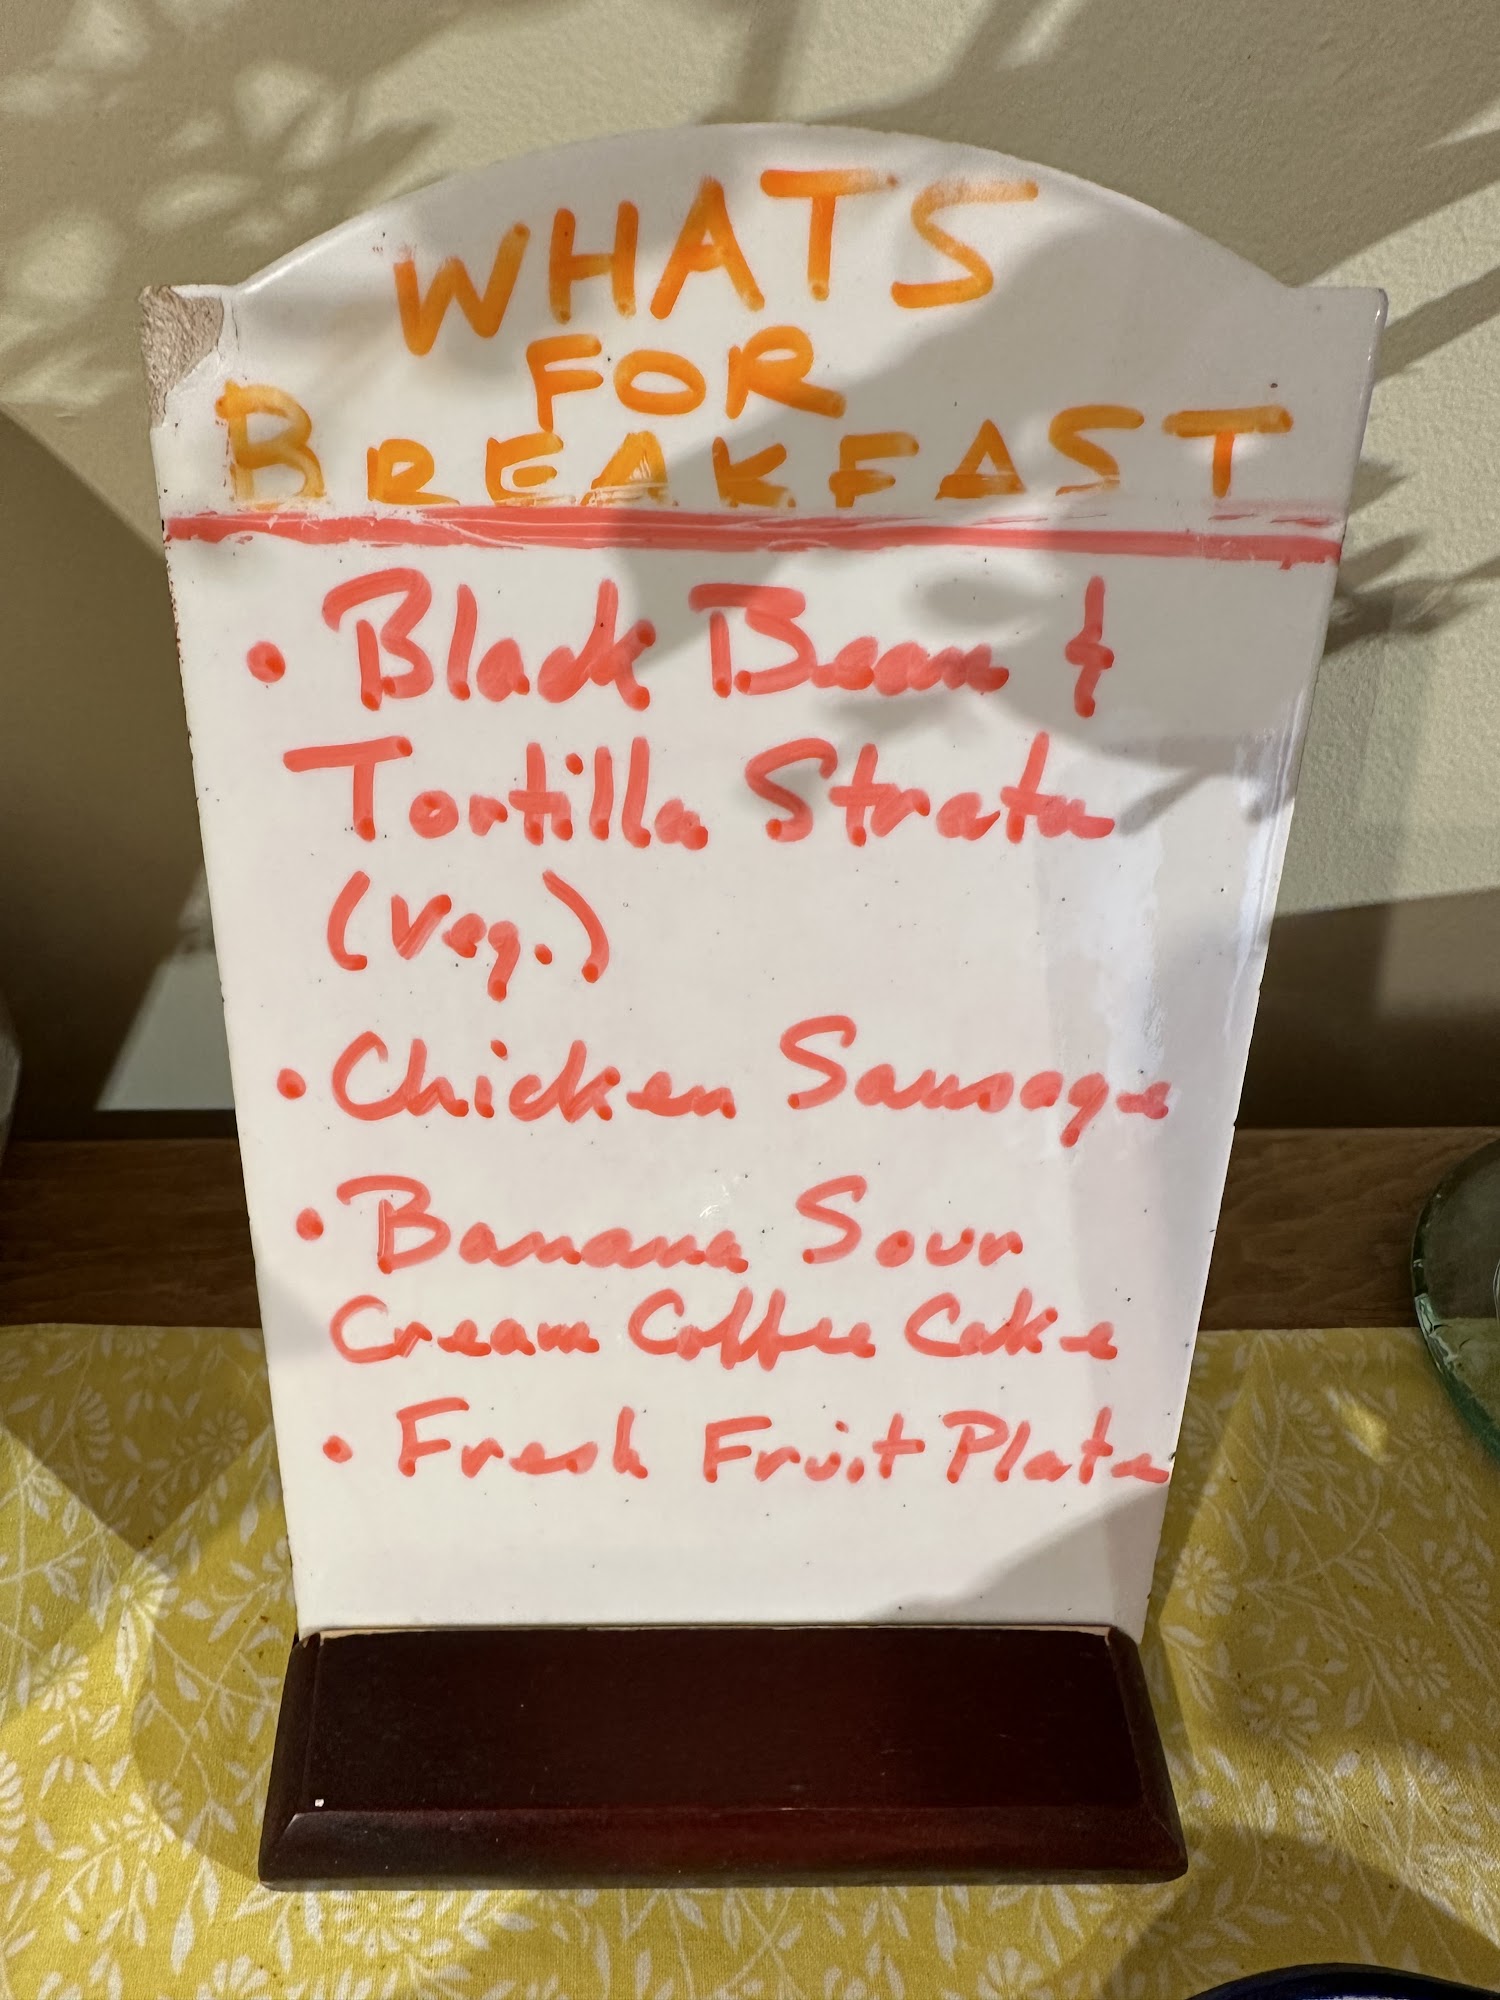 WHATS
FOR
BREAKFAST
• Black Bean &
Tortilla Strata
(Veg.)
• Chicken Sausage
• Banana Sour
Cream Coffee Cake
• Fresh Fruit Plate